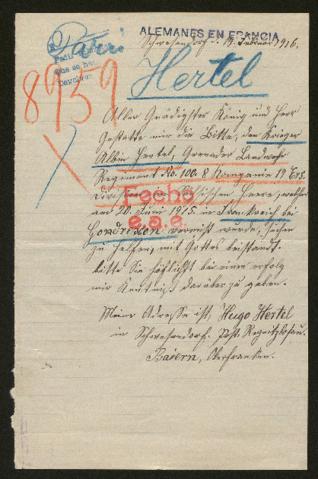 ALEMANES EN FRANCIA
Paris
Schwesendorf d. 19. Februar 1916.
Hertel
8939
Aller Gnädigster König und Herr
Gestatte mir die Bitte, den Krieger
Albin Hertel, Grenadier Landwehr
Regiment No. 100. 8 Kompanie 19 Ers.
Division Heere, welcher
am 20. Juni 1915. in Frankreich bei
Gondrexon vermisst wurde, suchen
zu helfen, mit Gottes beistandt.
bitte Sie höflichst bei einem erfolg
mir Kentniss darüber zu geben.
Fecho
e.a.e.
Meine Adresse ist, Hugo Hertel
in Schwesendorf. Post. Regnitzlosau.
Baiern, Oberfranken.